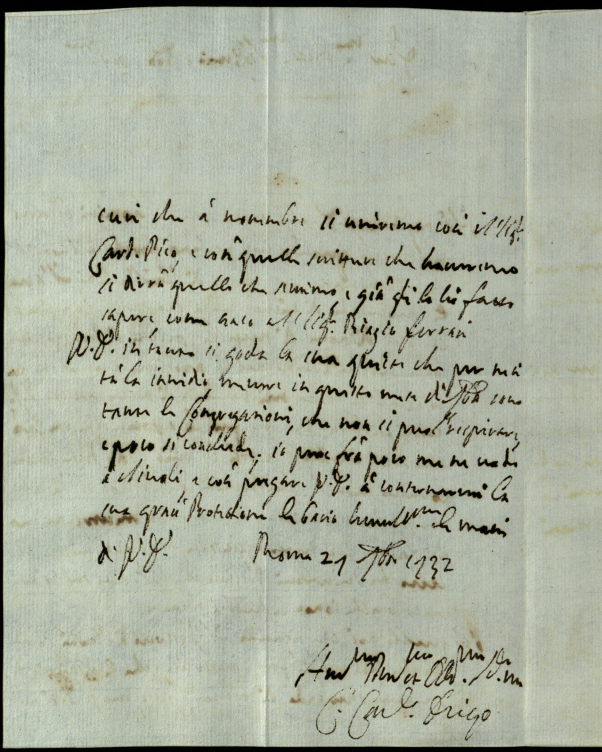 cusì che à novembre si uniremo così il Sig.r
Card. Pico, e così quelle scritture che haveremo
si dirà quello che siamo, e già gli lo hò fatto
sapere come anco al Sig.r Biagio Ferrari
V.E. in tanto si goda la sua quiete che per me
fà la invidia mentre in questo mese di 7bre sono
tante le Congregationi, che non si può respirare,
e poco si conclude. io però frà poco me ne vado
à Tivoli e con pregare V.E. à conservarmi la
sua gran Protezione le bacio humilm.te le mani
di V.E. Roma 21 7bre 1732
C. Card.